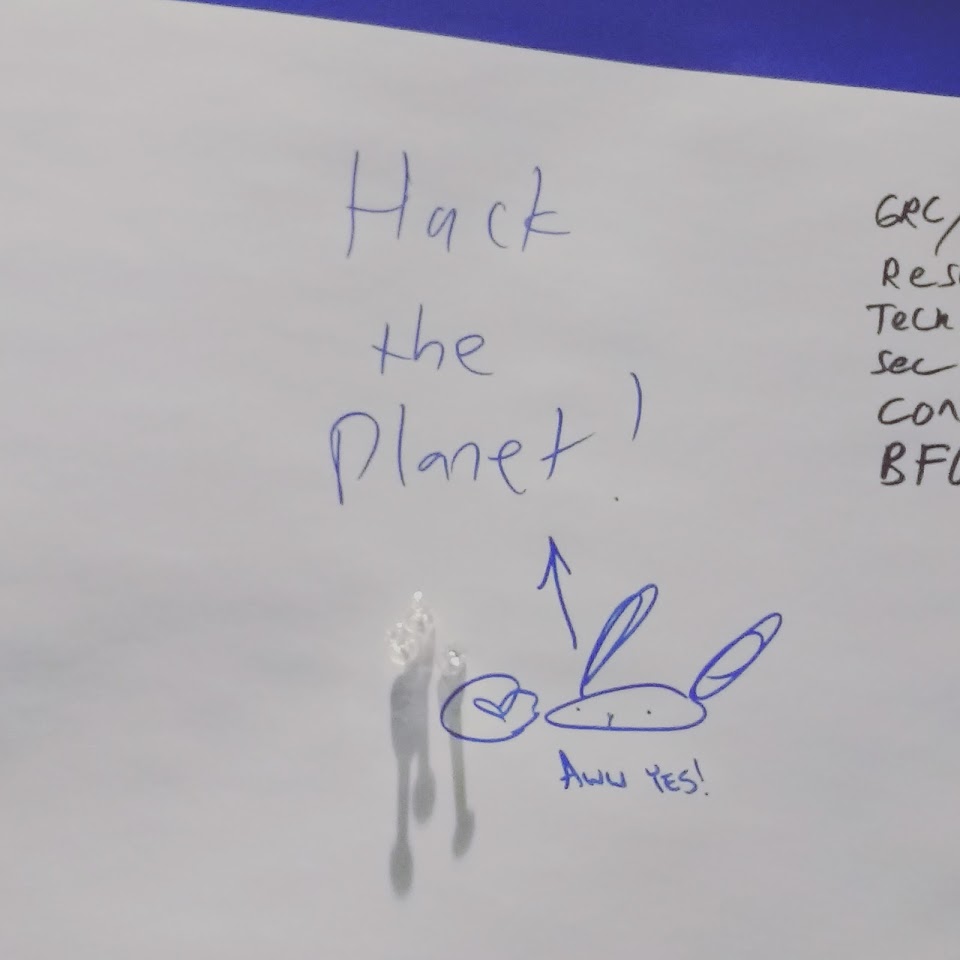 Hack
the
Planet!
AWW YES!
GRC/
Res
Tech
Sec
Con
BF